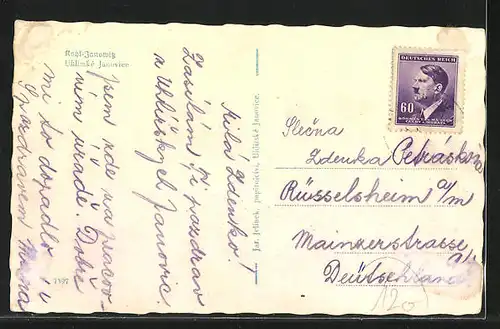 Kohl-Janowitz
Uhlířské Janovice
Milá Zdeničko!
Zasílám Ti pozdrav
z Uhlířských Janovic.
jsem zde na pracov-
ním úřadě. Dobře
mi to dopadlo
S pozdravem
Jar. Jelínek, papírnictví, Uhlířské Janovice.
DEUTSCHES REICH
60
BÖHMEN UND MÄHREN
Slečna
Zdenka Petrásková
Rüsselsheim a/m
Mainzerstrasse
Deutschland
120